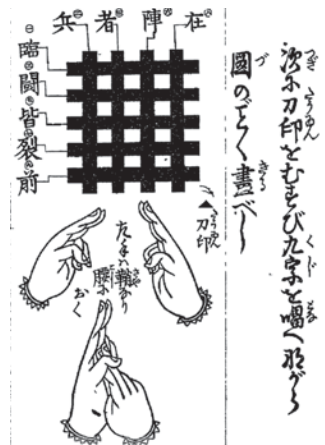 次に刀印をむすび九字を唱へながら
圖のごとく畫べし
在
陣
者
兵
臨
闘
皆
裂
前
▲刀印
左手ハ鞘なり
腰に
おく